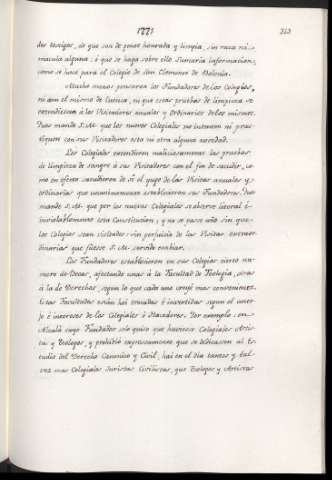 1771
313
dos testigos, de que son de gente honrada y limpia, sin raza ni
macula alguna: ó que se haga sobre ello Sumaria informacion,
como se hace para el Colegio de San Clemente de Bolonia.
Mucho menos pensaron los Fundadores de los Colegios,
ni aun el mismo de Cuenca, ni que estas pruebas de limpieza se
extendiesen á los Visitadores anuales y Ordinarios de los mismos.
Pues mande S. M. que los nuevos Colegiales no intenten ni prac-
tiquen con sus Visitadores esta ni otra alguna novedad.
Los Colegiales extendieron maliciosamente las pruebas
de limpieza de sangre á sus Visitadores con el fin de sacudir, co-
mo en efecto sacudieron de sí el yugo de las Visitas anuales y
ordinarias que unanimemente establecieron sus Fundadores. Pues
mande S. M. que por los nuevos Colegiales se observe literal é
inviolablemente esta Constitucion, y no se pase año sin que
los Colegios sean visitados: sin perjuicio de las Visitas extraor-
dinarias que fuesse S. M. servido embiar.
Los Fundadores establecieron en sus Colegios cierto nu-
mero de Becas, afectando unas á la Facultad de Teologia, otras
á la de Derechos, segun lo que cada uno creyó mas conveniente.
Estas Facultades están hoi trocadas é invertidas segun el anto-
jo é intereses de los Colegiales ó Hacedores. Por exemplo: en
Alcalá cuyo Fundador solo quiso que huviesse Colegiales Artis-
tas y Teologos, y prohibió expressamente que se dedicasen al Es-
tudio del Derecho Canonico y Civil, hai en el dia tantos y tal
vez mas Colegiales Juristas Civilistas, que Teologos y Artistas